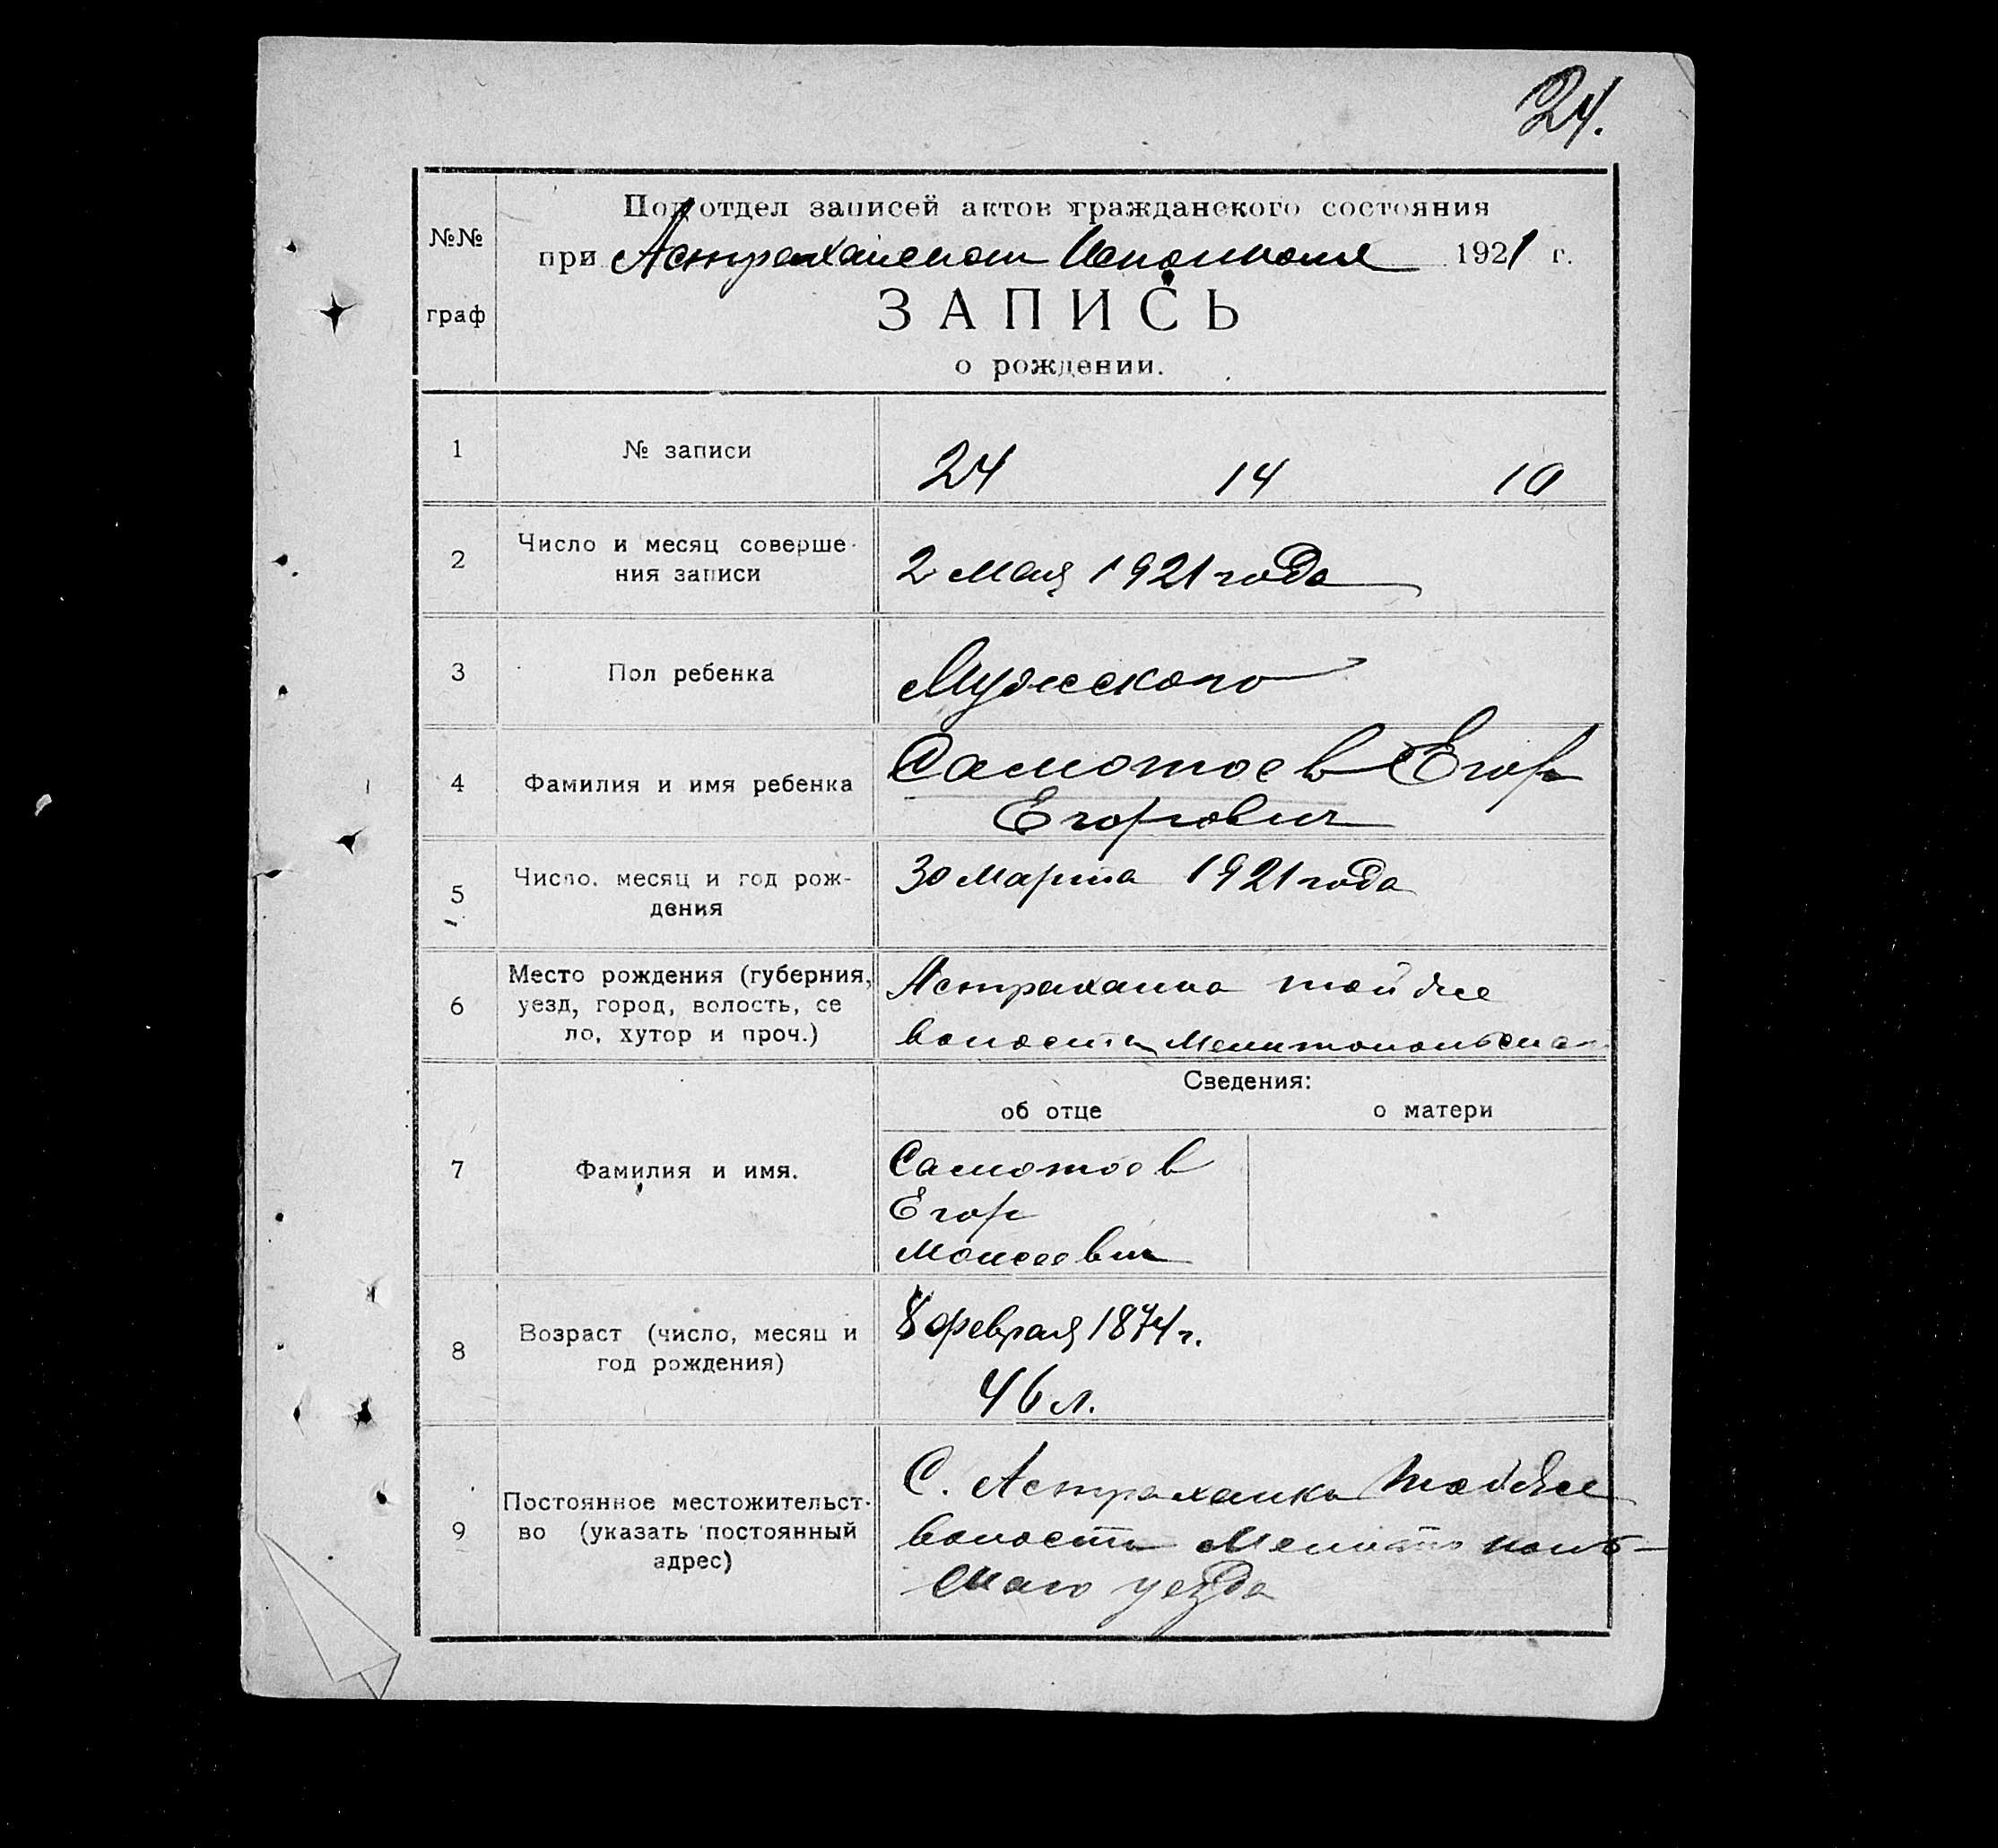 24.
Подотдел записей актов гражданского состояния
№№
при Астраханском Исполкоме 1921 г.
граф
ЗАПИСЬ
о рождении.
1 № записи 24 14 10
2 Число и месяц соверше-
ния записи
2 Мая 1921 года
3 Пол ребенка Мужского
4 Фамилия и имя ребенка
Самотоев Егор
Егорович
5 Число, месяц и год рож-
дения
30 Марта 1921 года
6 Место рождения (губерния,
уезд, город, волость, се
ло, хутор и проч.)
Астраханка той же
волости Мелитопольска
Сведения:
об отце о матери
7 Фамилия и имя.
Самотоев
Егор
Моисеевич
8 Возраст (число, месяц и
год рождения)
8 февраля 1874 г.
46 л.
9 Постоянное местожительст-
во (указать постоянный
адрес)
С. Астраханка той же
волости Мелитополь-
скаго уезда